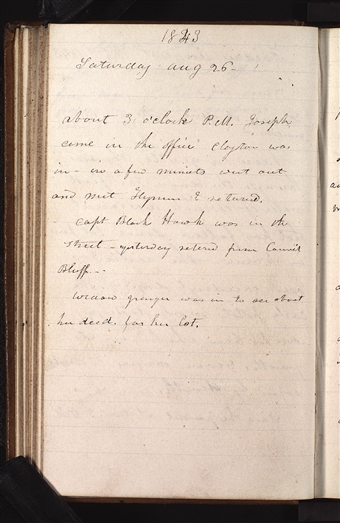 1843
Saturday aug 26 -
about 3 o'clock P.M. Joseph
come in the office Clayton was
in - in a few minuts went out
and met Hyrum & returned.
- Capt Black Hawk was in the
street - yesterday retired from Council
Bluff. -
Widow granger was in to see about
her deed. for her lot.